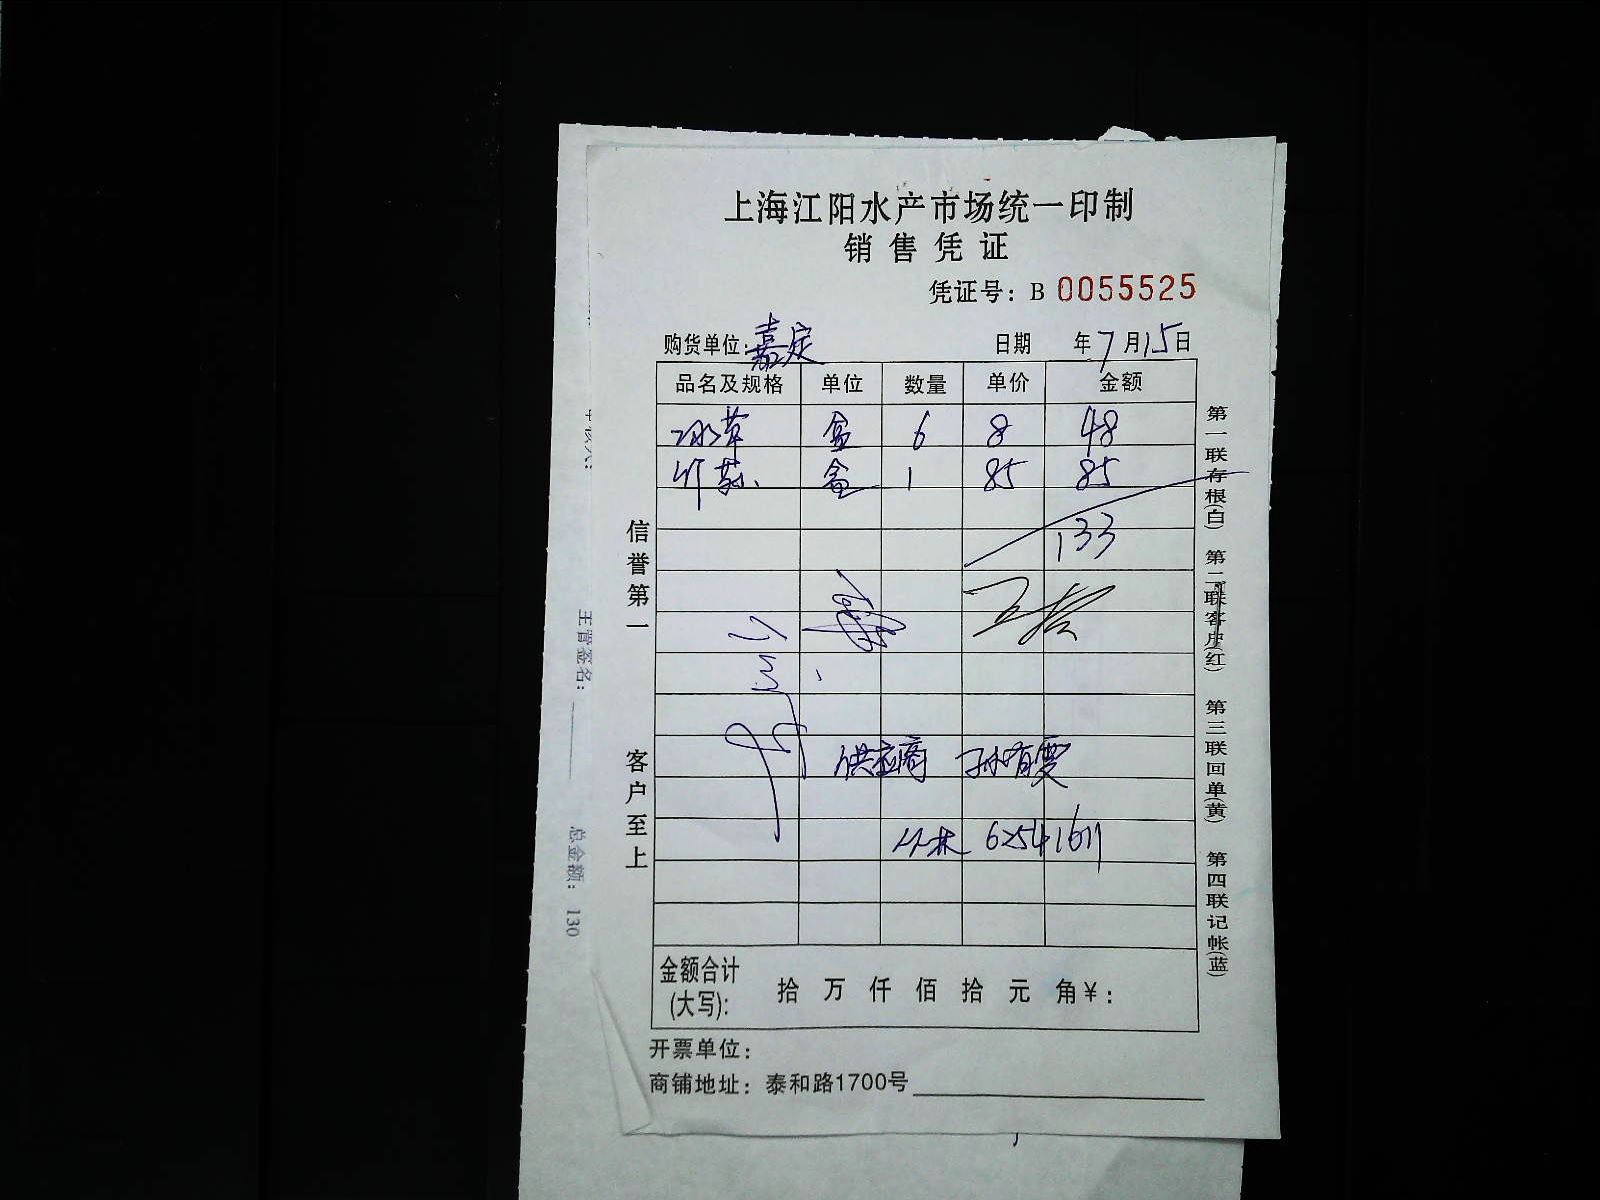 上海江阳水产市场统一印制
销售凭证
凭证号：B 0055525
购货单位：嘉定 日期 年7月15日
品名及规格 单位 数量 单价 金额
冰草 盒 6 8 48
竹荪 盒 1 85 85
133
供应商 孙有雯
丛林 62541611
金额合计(大写)： 拾 万 仟 佰 拾 元 角￥：
开票单位：
商铺地址：泰和路1700号
信誉第一 客户至上
第一联存根(白) 第二联客户(红) 第三联回单(黄) 第四联记帐(蓝)
主管签名：
总金额：130